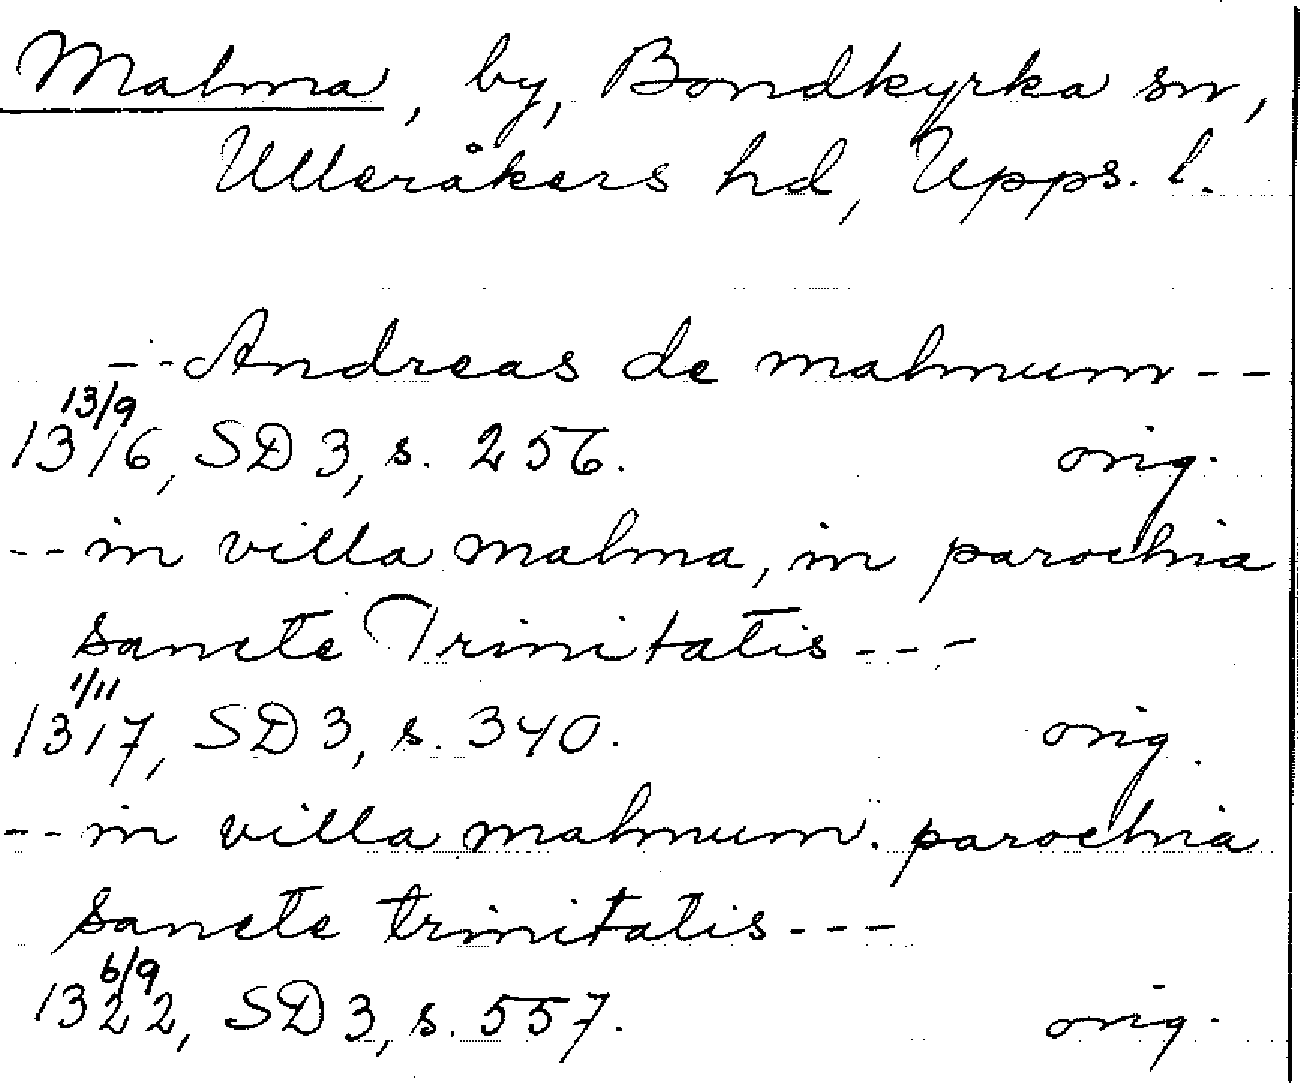 Malma, by, Bondkyrka sn,
Ulleråkers hd, Upps. l.
--- Andreas de malmum --
13/9
1316, SD 3, s. 256. orig.
-- in villa malma, in parochia
sancte Trinitatis ---
1/11
1317, SD 3, s. 340. orig.
-- in villa malmum. parochia
sancte trinitatis ---
6/9
1322, SD 3, s. 557. orig.